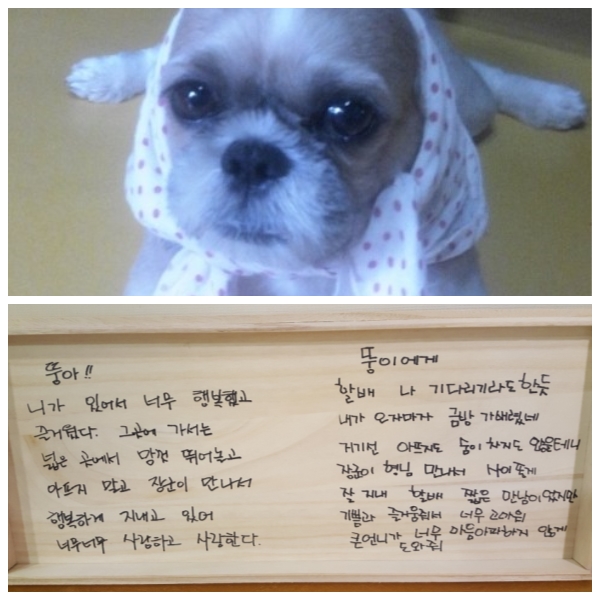 뚱아!!
니가 있어서 너무 행복했고
즐거웠다. 그곳에 가서는
넓은 곳에서 맘껏 뛰어놀고
아프지 말고 장군이 만나서
행복하게 지내고 있어
너무너무 사랑하고 사랑한다.
뚱이에게
할배 나 기다리기라도 한듯
내가 오자마자 금방 가버렸네
거기선 아프지도 숨이 차지도 않을테니
장군이 형님 만나서 사이좋게
잘 지내 할배 짧은 만남이었지만
기쁨과 즐거움줘서 너무 고마워
큰언니가 너무 마음아파하지 않게
도와줘